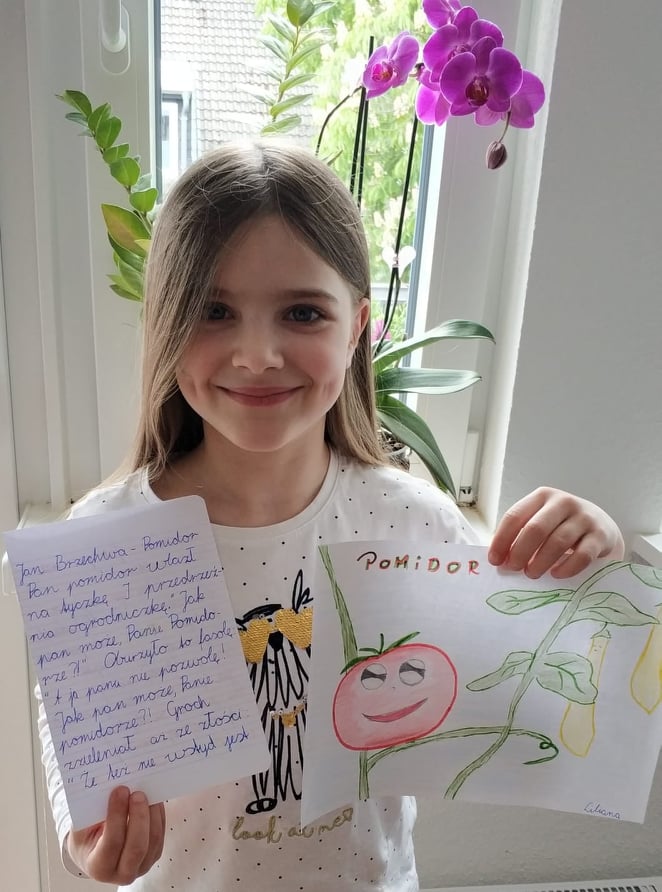 Jan Brzechwa - Pomidor
Pan pomidor wlazł
na tyczkę I przedrzeź-
nia ogrodniczkę. "Jak
pan może, Panie Pomido-
rze?!" Oburzyło to fasolę:
"A ja panu nie pozwolę!
Jak pan może, Panie
pomidorze?! Groch
zzieleniał aż ze złości:
"Że też nie wstyd jest
POMiDOR
Liliana
look at me